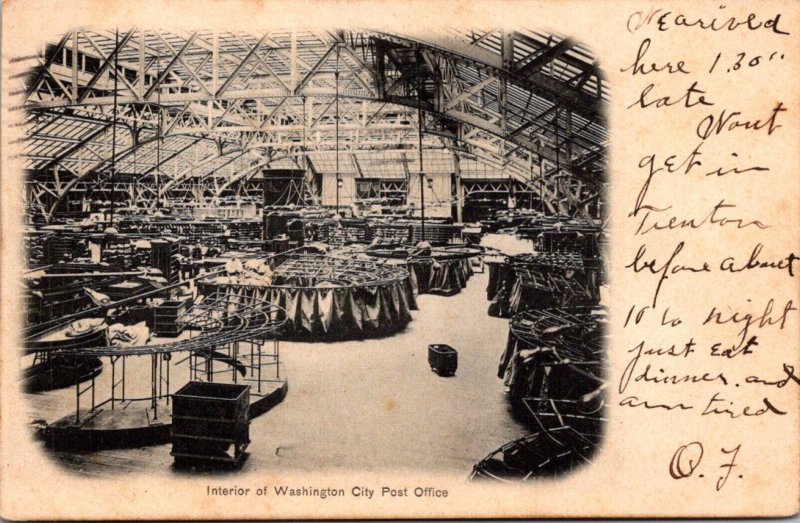 Nearived
here 1.30"
late
Wont
get in
Trenton
before about
10 to night
just Eat
dinner. and
am tired
O. F.
Interior of Washington City Post Office